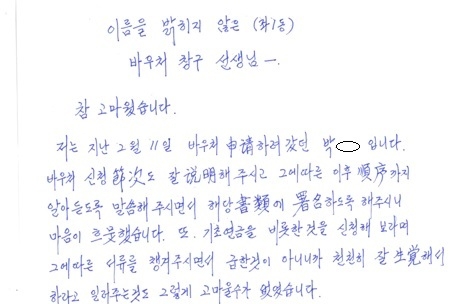 이름을 밝히지 않은 (좌1동)
바우처 창구 선생님 ㅡ.
참 고마웠습니다.
저는 지난 2월 11일 바우처 申請하러 갔던 박 입니다.
바우처 신청 節次도 잘 說明해 주시고 그에따른 이후 順序까지
알아듣도록 말씀해 주시면서 해당 書類에 署名하도록 해주시니
마음이 흐뭇했습니다. 또. 기초연금을 비롯한것을 신청해 보라며
그에따른 서류를 챙겨주시면서 급한것이 아니니까 천천히 잘 生覺해서
하라고 일러주는것도 그렇게 고마울수가 없었습니다.